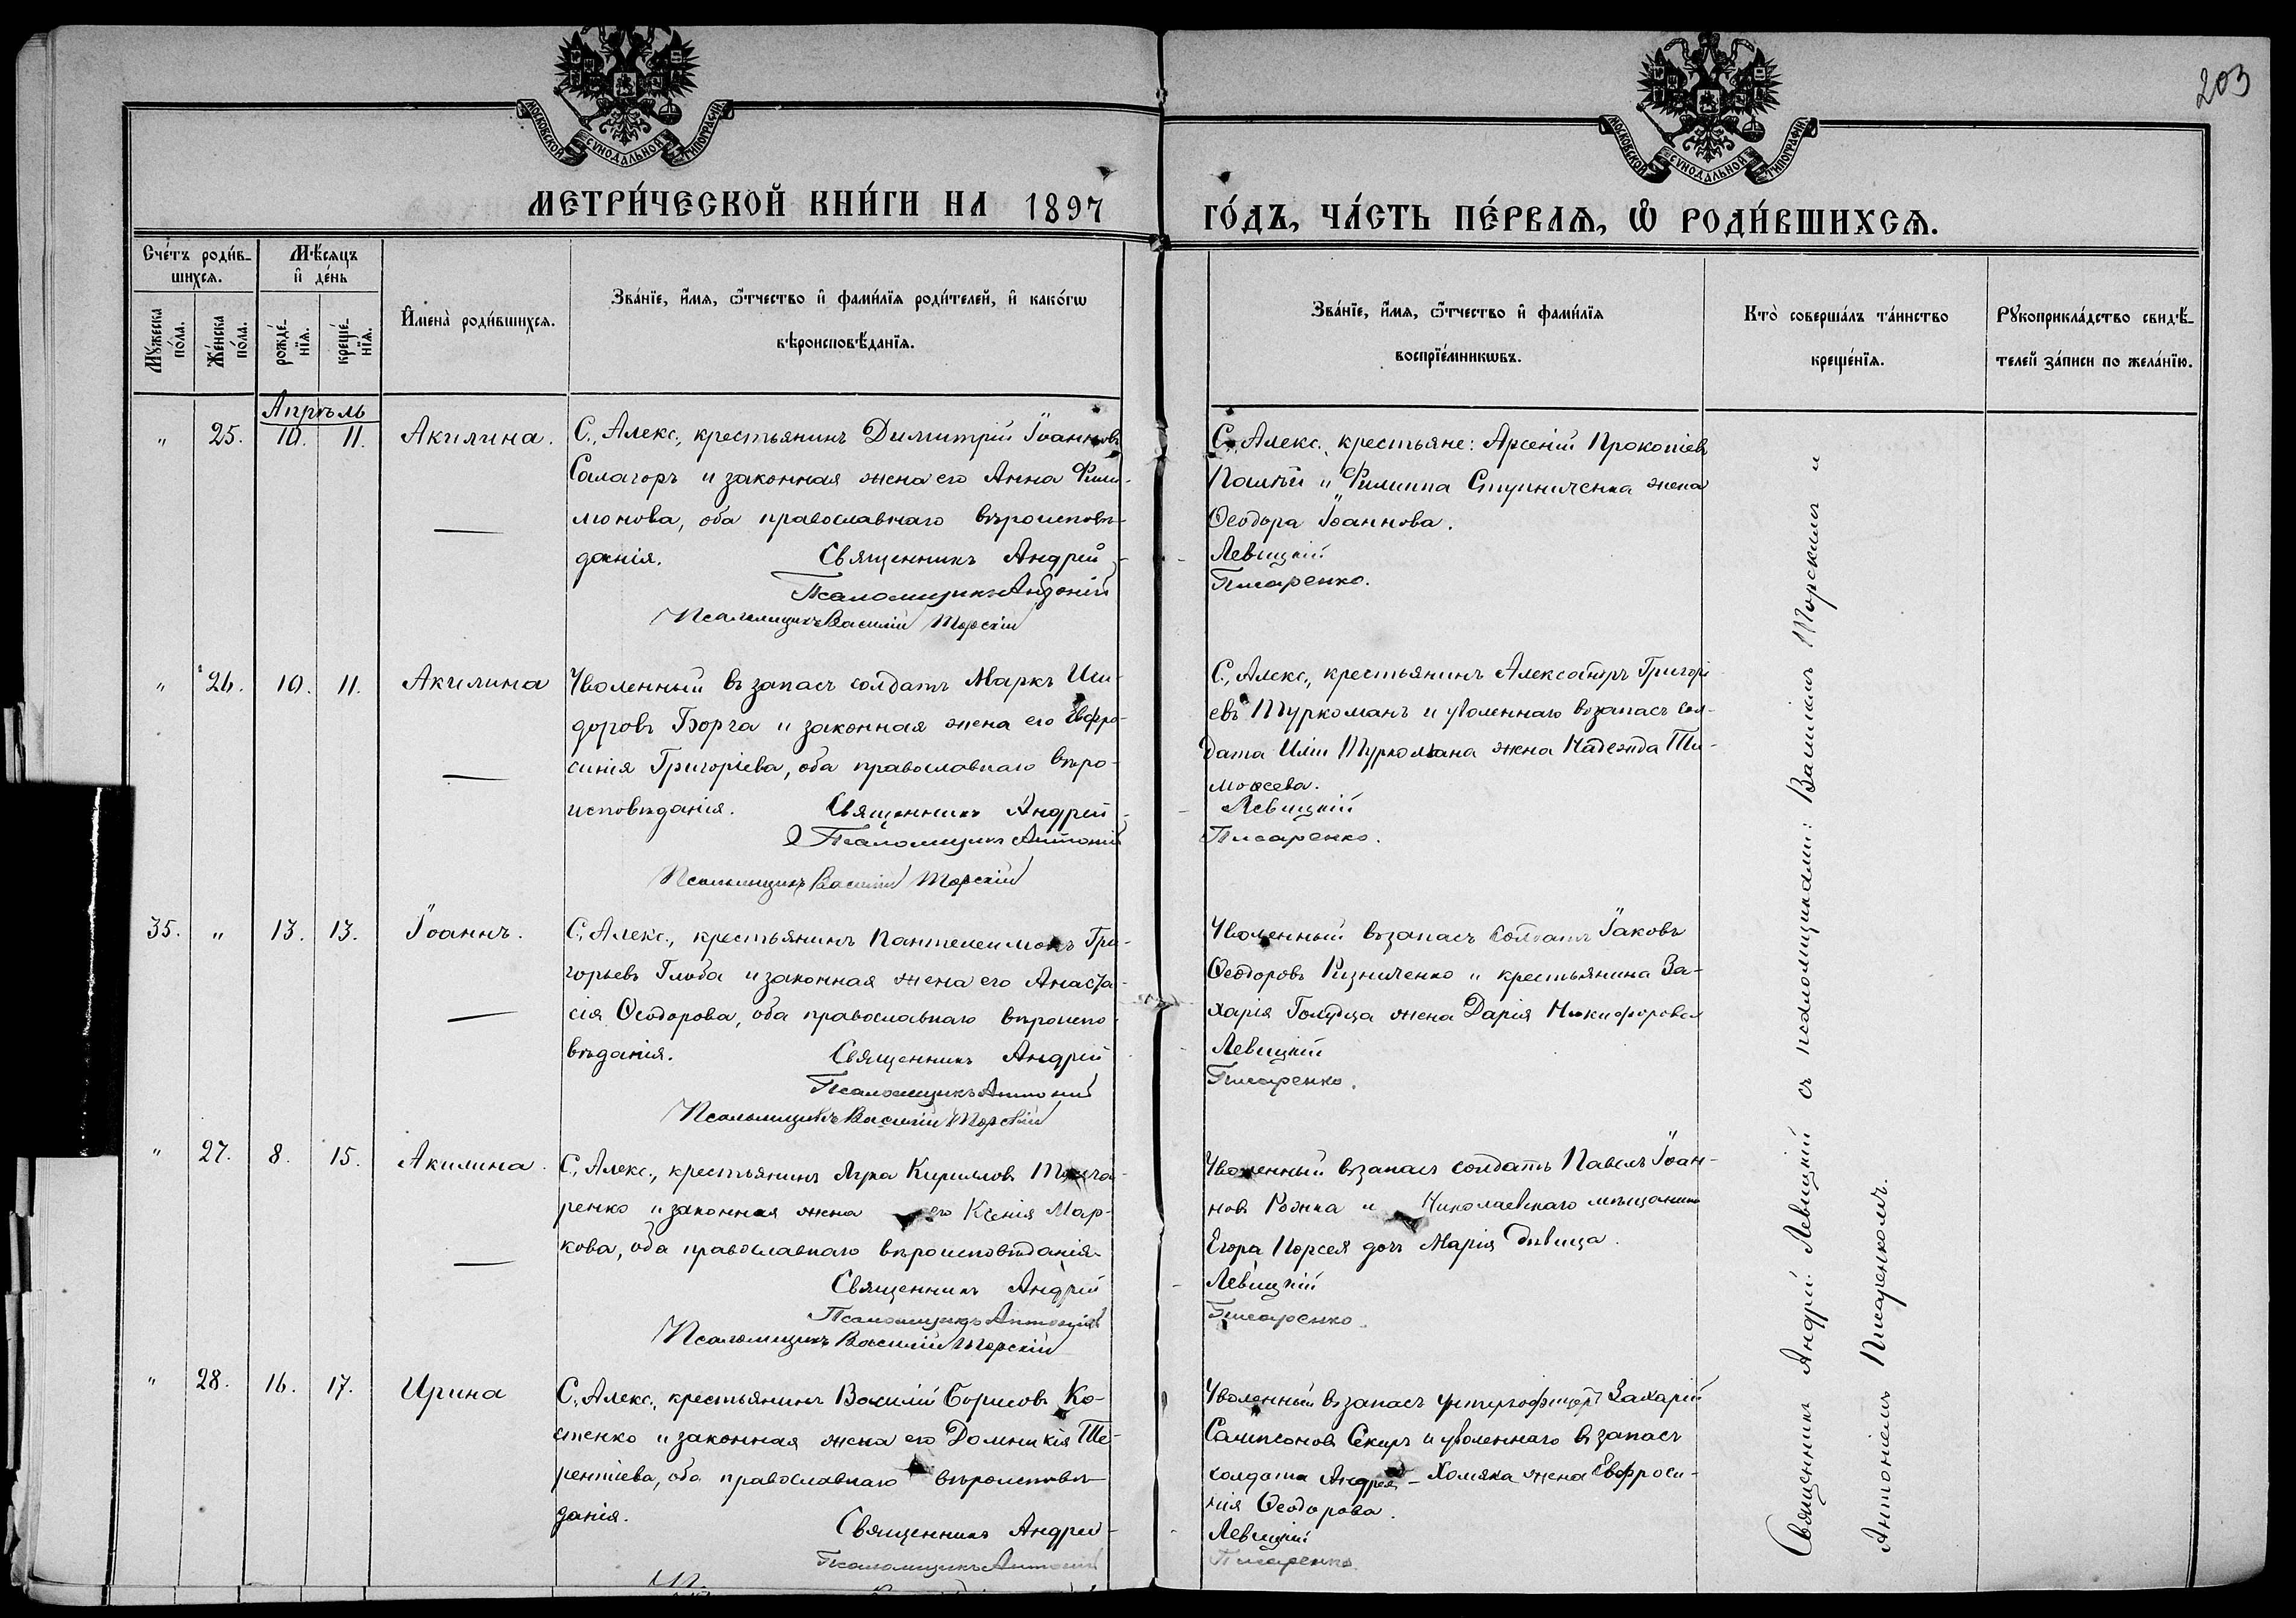 203
МОСКОВСКОЙ СѴНОДАЛЬНОЙ ТИПОГРАФІИ
МОСКОВСКОЙ СѴНОДАЛЬНОЙ ТИПОГРАФІИ
МЕТРИ́ЧЕСКОЙ КНИ́ГИ НА 1897
ГО́ДЪ, ЧА́СТЬ ПЕ́РВАѦ, Ѡ РОДИ́ВШИХСѦ.
Сче́тъ роди́в-
шихсѧ.
Мѣ́сѧцъ
и҆ де́нь
Мꙋ́жеска по́ла.
Же́нска по́ла.
рожде́-
нїѧ.
креще́-
нїѧ.
И҆мена̀ роди́вшихсѧ.
Зва́нїе, и҆́мѧ, ѻ҆́тчество и҆ фами́лїѧ роди́телей, и҆ како́гѡ
вѣроисповѣ́данїѧ.
Зва́нїе, и҆́мѧ, ѻ҆́тчество и҆ фами́лїѧ
воспрїе́мникѡвъ.
Кто̀ соверша́лъ та́инство
креще́нїѧ.
Рꙋкоприкла́дство свидѣ́-
телей за́писи по жела́нїю.
Апрѣль
" 25. 10. 11. Акилина.
С., Алекс., крестьянинъ Димитрій Іоанновъ
Салагоръ и законная жена его Анна Фили-
монова, оба православнаго вѣроисповѣ-
данія. Священникъ Андрей
Псаломщикъ Антоній
Псаломщикъ Василій Торскій
С., Алекс., крестьяне: Арсеній Прокопіевъ
и Филиппа Ступниченка жена
Ѳеодора Іоаннова.
Левицкій
Писаренко.
" 26. 10. 11. Акилина
Уволенный въ запасъ солдатъ Маркъ Иси-
доровъ Борга и законная жена его Евфро-
синія Григоріева, оба православнаго вѣро-
исповѣданія. Священникъ Андрей
Псаломщикъ Антоній
Псаломщикъ Василій Торскій
С., Алекс., крестьянинъ Александръ Григорі-
евъ Туркоманъ и уволеннаго въ запасъ сол-
дата Иліи Туркомана жена Надежда Ти-
моѳеева.
Левицкій
Писаренко.
35. " 13. 13. Іоаннъ.
С., Алекс., крестьянинъ Пантелеимонъ Гри-
горьевъ Глоба и законная жена его Анаста-
сія Ѳеодорова, оба православнаго вѣроиспо-
вѣданія. Священникъ Андрей
Псаломщикъ Антоній
Псаломщикъ Василій Торскій
Уволенный въ запасъ солдатъ Іаковъ
Ѳеодоровъ Ризниченко и крестьянина За-
харія Голубца жена Дарія Никифорова
Левицкій
Писаренко.
" 27. 8. 15. Акилина.
С., Алекс., крестьянинъ Кирилловъ
ренко и законная жена его Ксенія Мар-
кова, оба православнаго вѣроисповѣданія.
Священникъ Андрей
Псаломщикъ Антоній
Псаломщикъ Василій Торскій
Уволенный въ запасъ солдатъ Павелъ Іоан-
новъ и Николаевскаго мѣщанина
Егора Порсея дочь Марія дѣвица.
Левицкій
Писаренко.
" 28. 16. 17. Ирина
С., Алекс., крестьянинъ Василій Борисовъ Ко-
стенко и законная жена его Домникія Те-
рентіева, оба православнаго вѣроисповѣ-
данія. Священникъ Андрей
Псаломщикъ Антоній
Уволенный въ запасъ унтерофицеръ Захарій
Сампсоновъ Секиръ и уволеннаго въ запасъ
солдата Андрея Хомяка жена Евфроси-
нія Ѳеодорова.
Левицкій
Писаренко
Священникъ Андрей Левицкій съ псаломщиками: Василіемъ Торскимъ и
Антоніемъ Писаренкомъ.